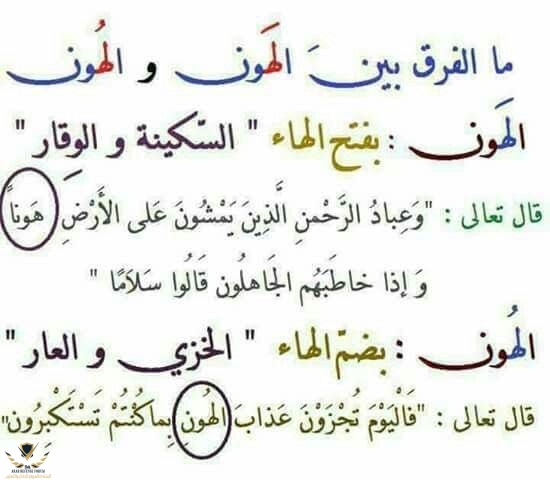 ما الفرق بين الهَون و الهُون
الهَون : بفتح الهاء " السّكينة و الوقار "
قال تعالى : "وَعِبادُ الرَّحْمنِ الَّذِينَ يَمْشُونَ عَلى الأَرْضِ هَوناً
وَ إذا خاطَبَهُم الجَاهلُون قَالُوا سَلاَمًا "
الهُون : بضمّ الهاء " الخزي و العار "
قال تعالى : "فَالْيَوْمَ تُجْزَوْنَ عَذابَ الهُونِ بِماكُنْتُمْ تَسْتَكْبِرُون"